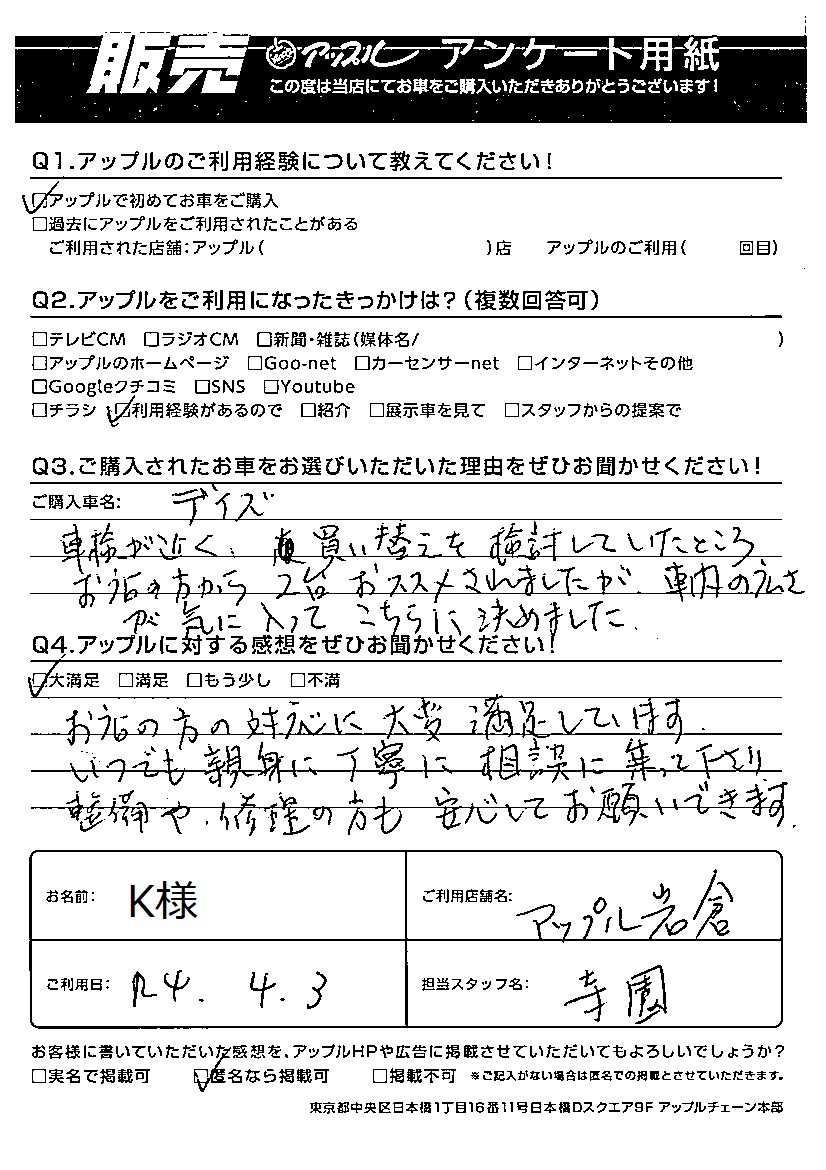 販売 アップル アンケート用紙
この度は当店にてお車をご購入いただきありがとうございます!
Q1.アップルのご利用経験について教えてください!
☑アップルで初めてお車をご購入
□過去にアップルをご利用されたことがある
ご利用された店舗:アップル( )店 アップルのご利用( 回目)
Q2.アップルをご利用になったきっかけは?(複数回答可)
□テレビCM □ラジオCM □新聞・雑誌(媒体名/ )
□アップルのホームページ □Goo-net □カーセンサーnet □インターネットその他
□Googleクチコミ □SNS □Youtube
□チラシ ☑利用経験があるので □紹介 □展示車を見て □スタッフからの提案で
Q3.ご購入されたお車をお選びいただいた理由をぜひお聞かせください!
ご購入車名: デイズ
車検が近く、買い替えを検討していたところ
お店の方から2台おススメされましたが、車内の広さ
が気に入ってこちらに決めました.
Q4.アップルに対する感想をぜひお聞かせください!
☑大満足 □満足 □もう少し □不満
お店の方の対応に大変満足しています.
いつでも親身に丁寧に相談に乗って下さり
整備や、修理の方も安心してお願いできます.
お名前: K様 ご利用店舗名: アップル岩倉
ご利用日: R4. 4.3 担当スタッフ名: 寺園
お客様に書いていただいた感想を、アップルHPや広告に掲載させていただいてもよろしいでしょうか?
□実名で掲載可 ☑匿名なら掲載可 □掲載不可 ※ご記入がない場合は匿名での掲載とさせていただきます。
東京都中央区日本橋1丁目16番11号日本橋Dスクエア9F アップルチェーン本部